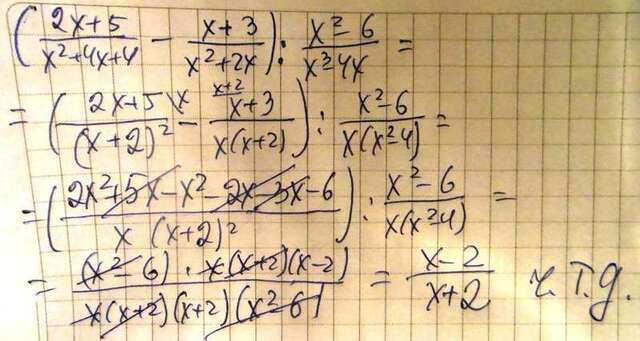 (2x+5/x²+4x+4 - x+3/x²+2x) : x²-6/x³-4x =
= (2x+5\x/(x+2)² - x+2/x+3/x(x+2)) : x²-6/x(x²-4) =
= (2x²+5x-x²-2x-3x-6/x (x+2)²) : x²-6/x(x²-4) =
= (x²-6) · x(x+2)(x-2)/x(x+2)(x+2)(x²-6) = x-2/x+2 ч.т.д.